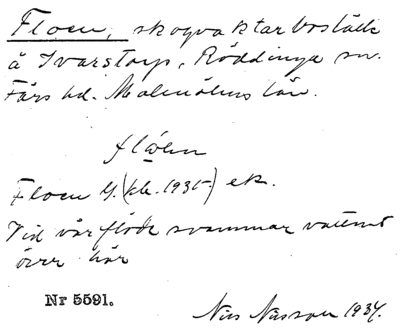 Floen, skogvaktarboställe
å Ivarstorp, Röddinge sn.
Färs hd. Malmöhus län.
flóen
Floen G. (kb. 1935) ek.
Vid vårflöde svämmar vattnet
över här
Nr 5591.
Nils Nilsson 1934.